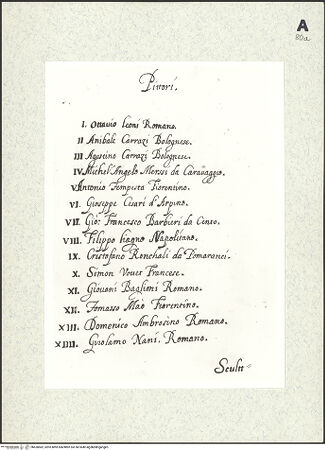 A
80a
Pittori.
I. Ottavio Leoni Romano.
II Anibale Carrazi Bolognese.
III Agostino Carrazi Bolognese.
IV. Michel'Angelo Morisi da Caravaggio.
V. Antonio Tempesta Fiorentino.
VI. Gioseppe Cesari d'Arpino.
VII. Gio: Francesco Barbieri da Cento.
VIII. Filippo Napolitano.
IX. Cristofano Ronchali da Pomaranci.
X. Simon Vouet Francese.
XI. Giovoni Baglioni Romano.
XII. Tomasso Mao Fiorentino.
XIII. Domenico Ambrosino Romano.
XIIII. Girolamo Nani. Romano.
Scult=